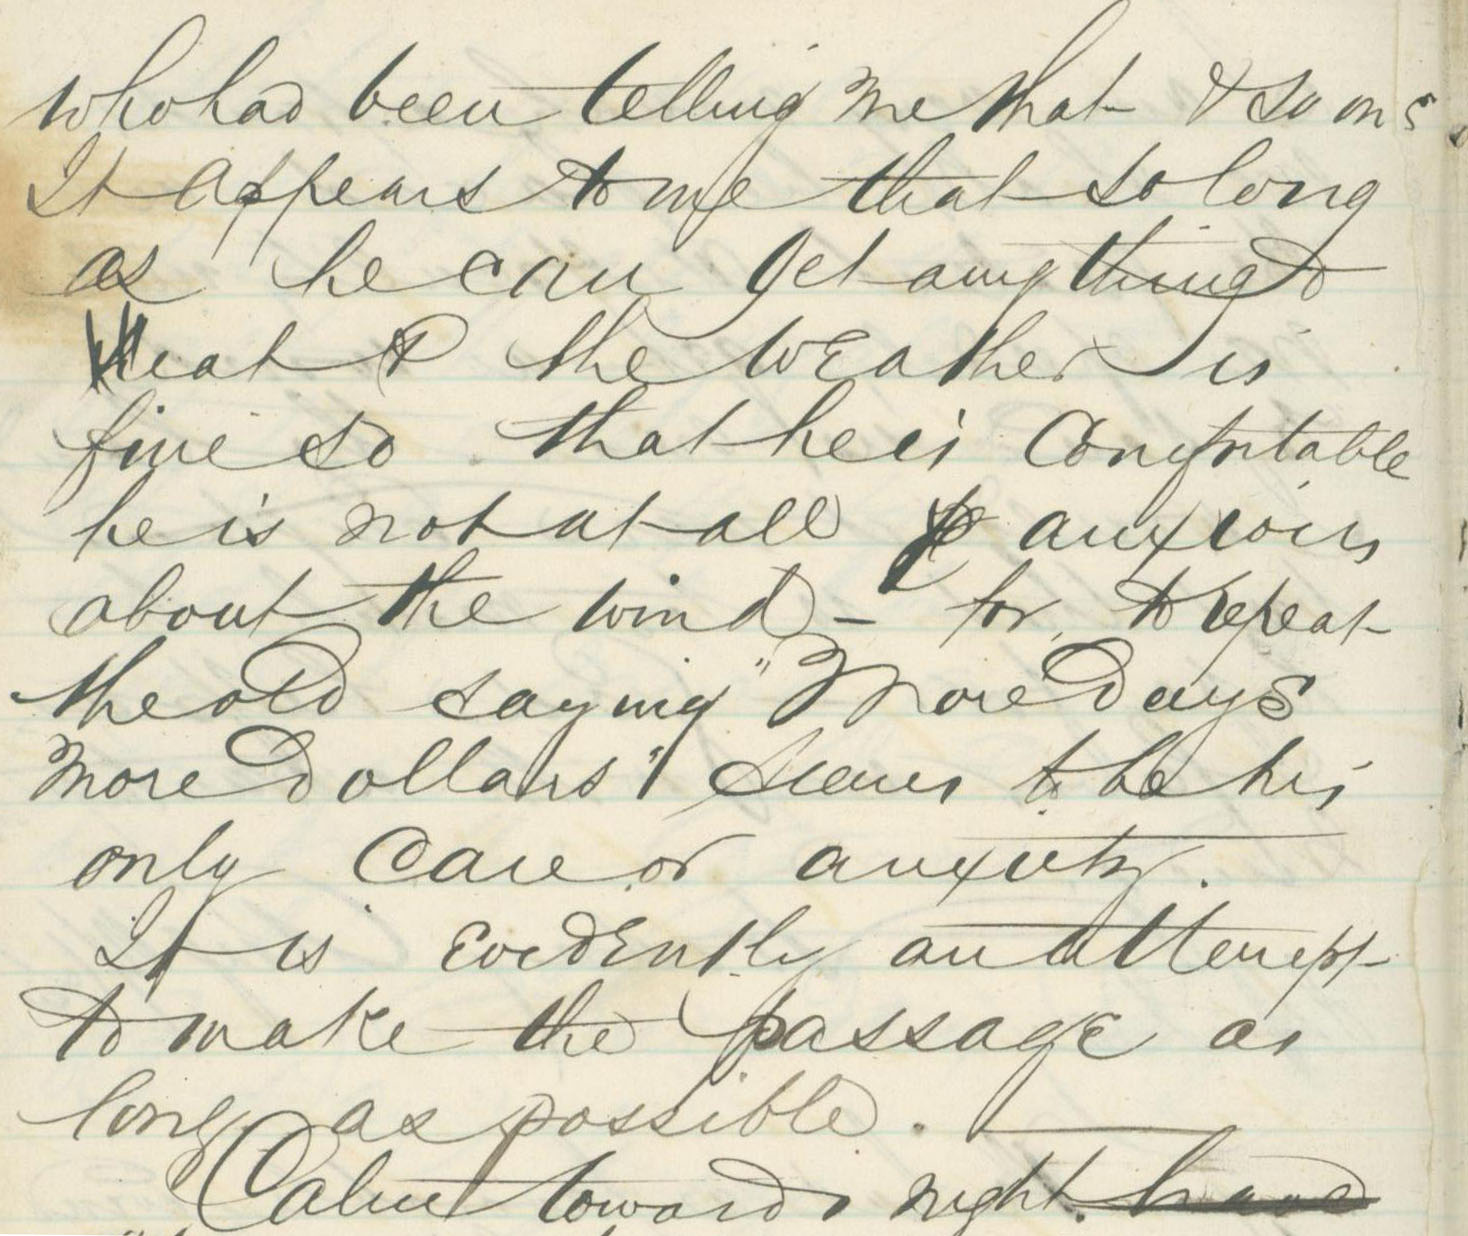 who had been telling me that & so on s
It appears to me that so long
as he can get anything to
eat & the weather is
fine so that he is Comfortable
he is not at all anxious
about the wind - for to repeat
the old saying "More Days
More Dollars" seems to be his
only Care or anxiety.
It is evidently an attempt
to make the passage as
long as possible.
Calm towards night. have